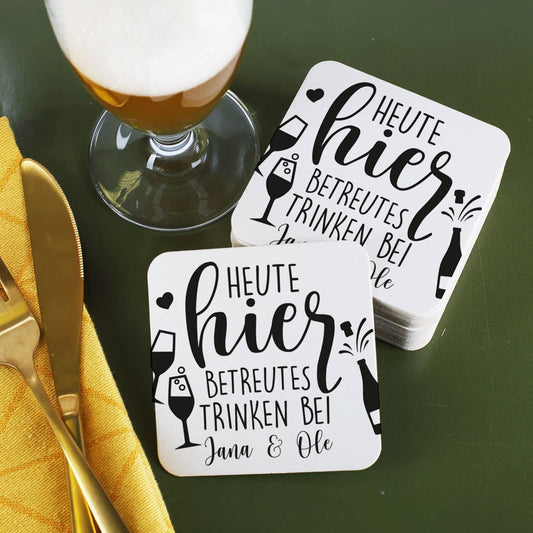 HEUTE
hier
BETREUTES
TRINKEN BEI
Jana & Ole
HEUTE
hier
BETREUTES
TRINKEN BEI
Jana & Ole